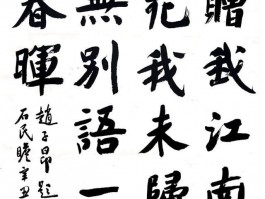 贈我江南
花我未歸
無別語一
春暉
趙子昂題
石民瞻辛丑